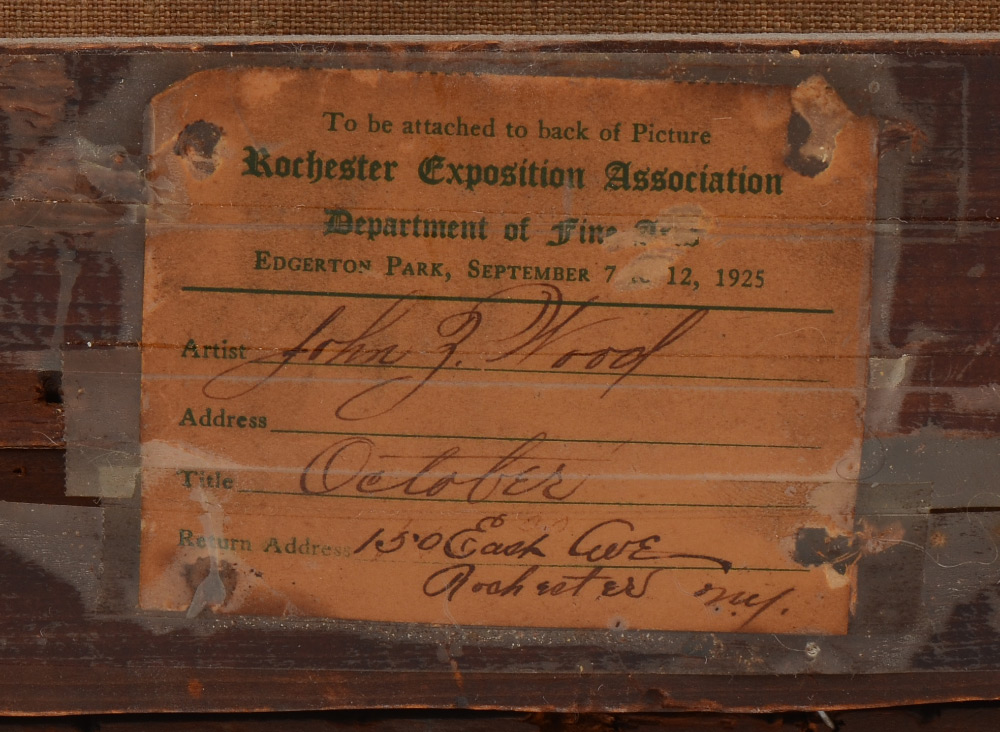 To be attached to back of Picture
Rochester Exposition Association
Department of Fine Arts
EDGERTON PARK, SEPTEMBER 7 to 12, 1925
Artist John Z. Wood
Address
Title October
Return Address 150 East Ave
Rochester N.Y.